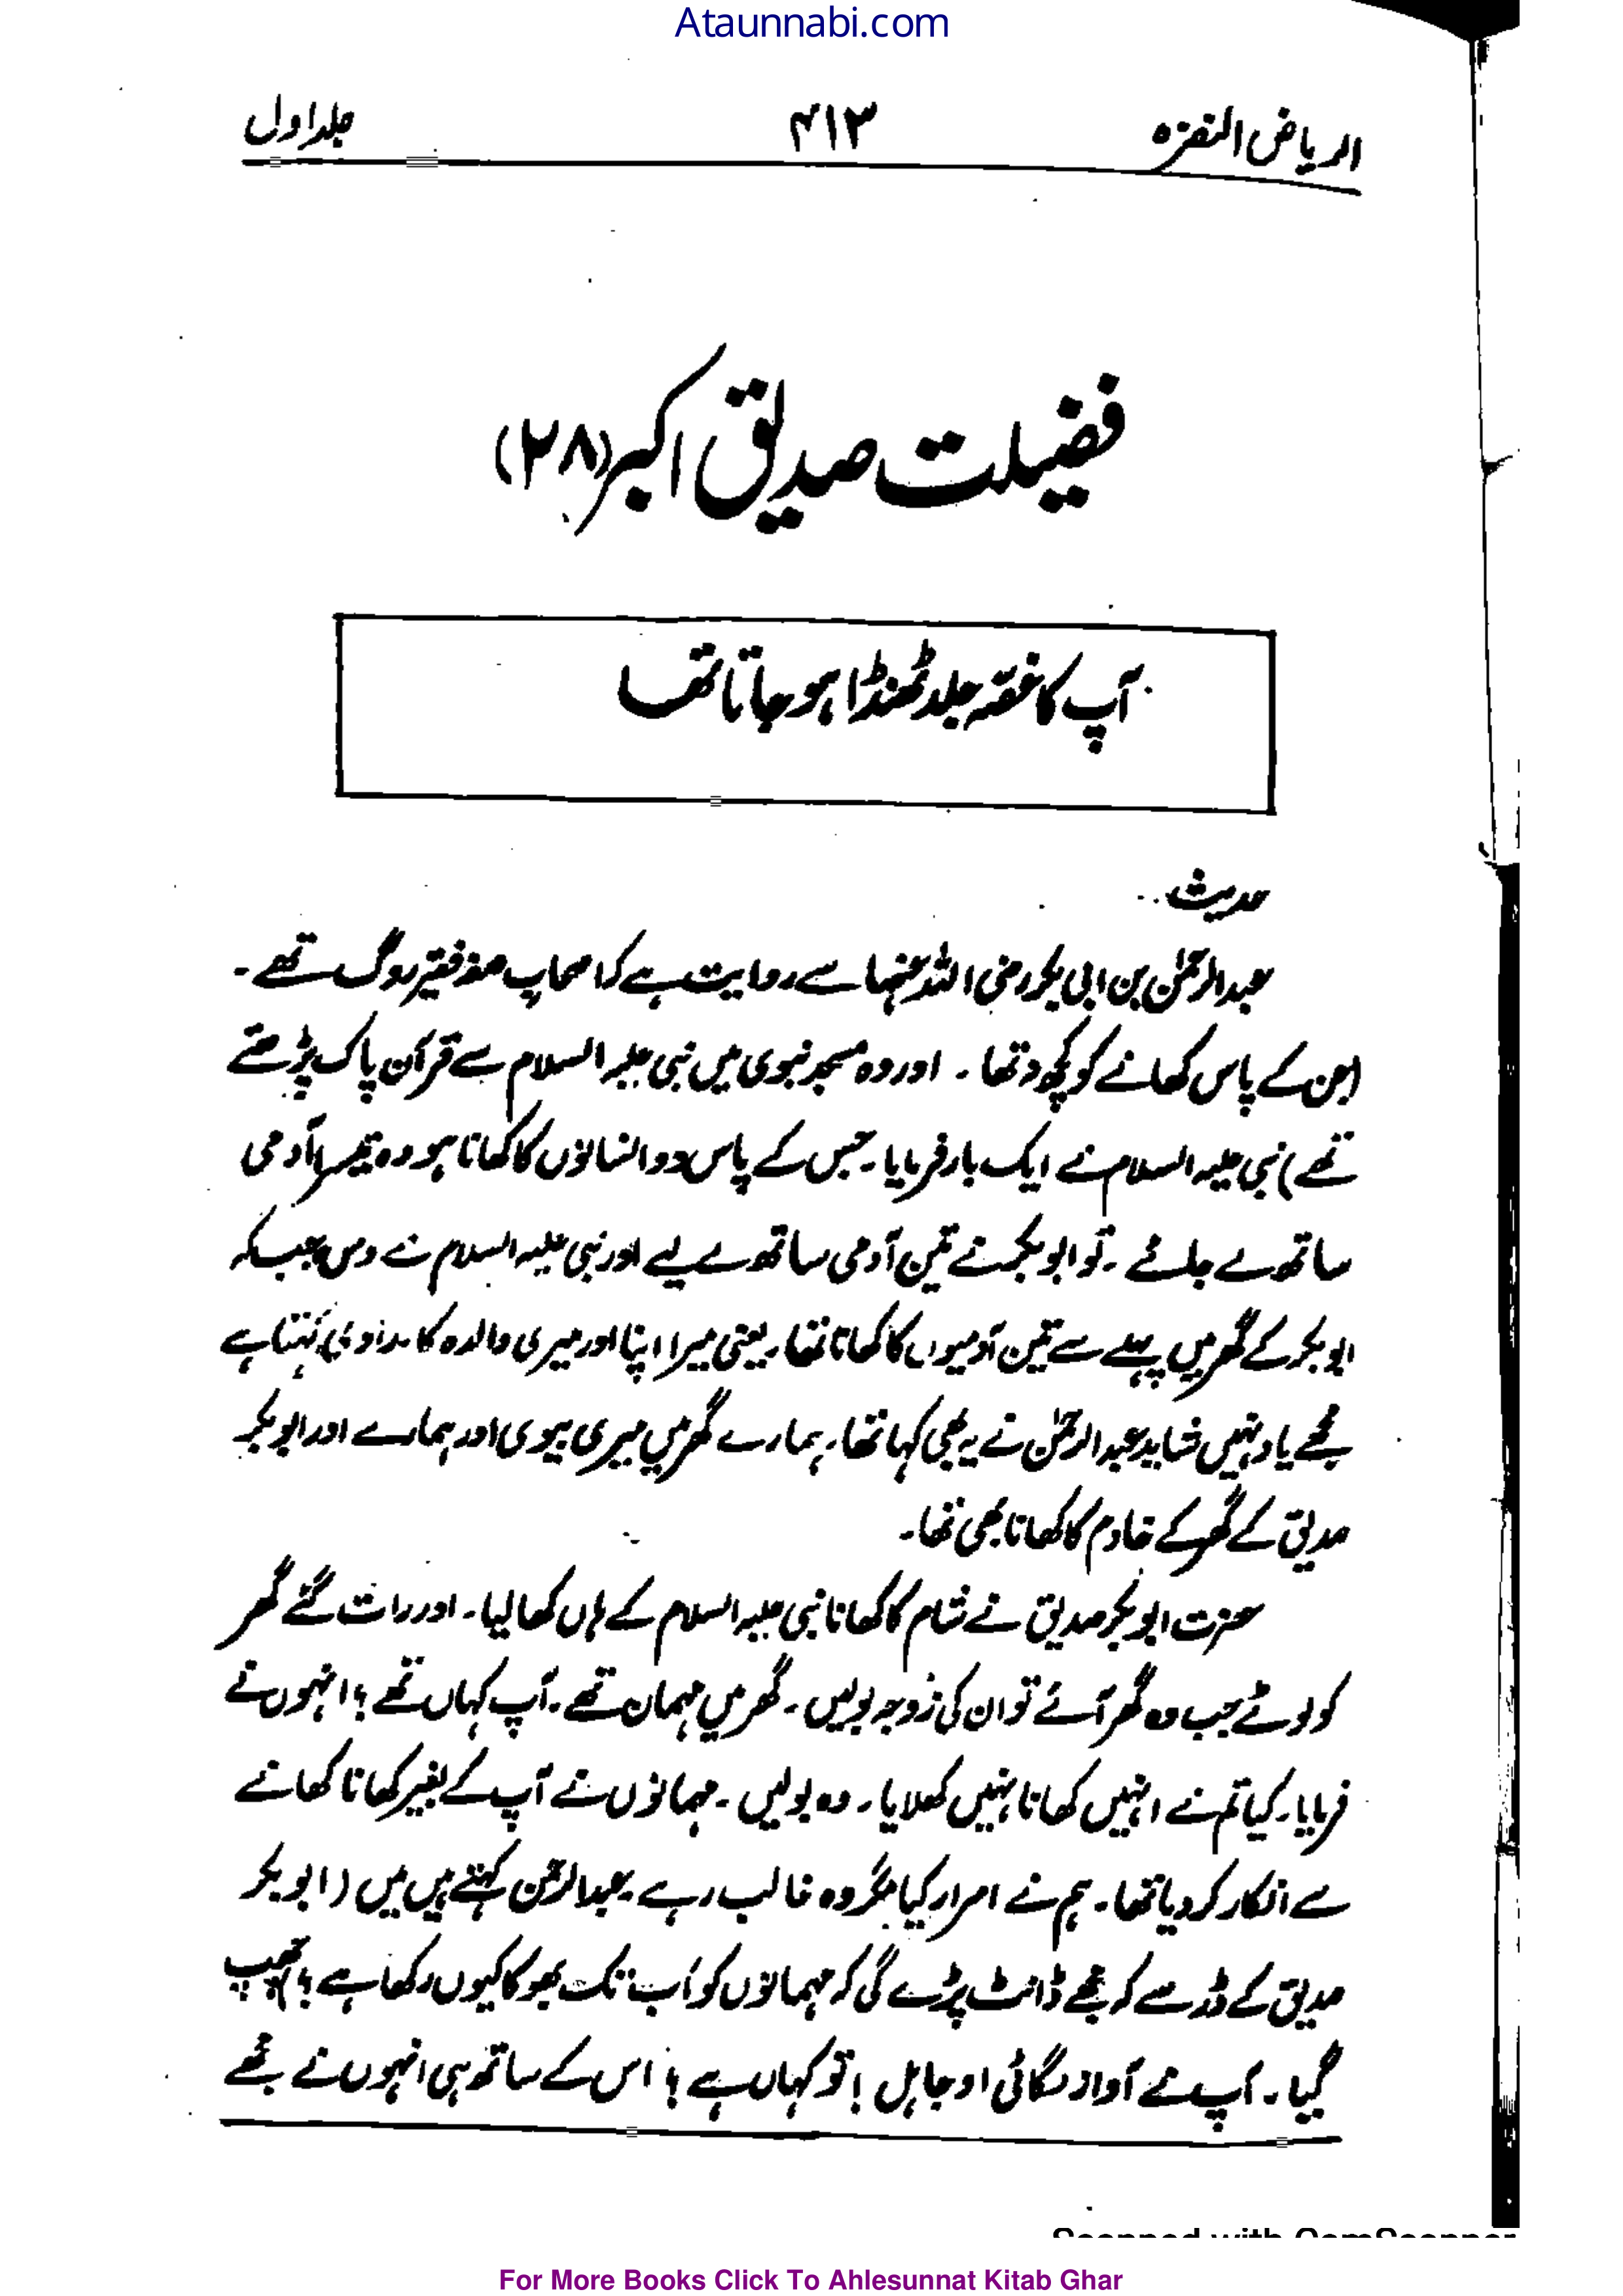 Ataunnabi.com
الریاض النضرہ ۴۱۳ جلد اول
فضیلت صدیق اکبر (۲۸)
آپ کا غصّہ جلد ٹھنڈا ہو جاتا تھا
حدیث۔
عبدالرحمٰن بن ابی بکر رضی اللہ عنہما سے روایت ہے کہ اصحاب صفہ فقیر لوگ تھے۔
(جن کے پاس کھانے کو کچھ نہ تھا۔ اور وہ مسجد نبوی میں نبی علیہ السلام سے قرآن پاک پڑھتے
تھے) نبی علیہ السلام نے ایک بار فرمایا۔ جس کے پاس دو انسانوں کا کھانا ہو وہ تیسرا آدمی
ساتھ لے جائے۔ تو ابو بکر نے تین آدمی ساتھ لے لیے اور نبی علیہ السلام نے دس جب کہ
ابو بکر کے گھر میں پہلے سے تین آدمیوں کا کھانا تھا۔ یعنی میرا اپنا اور میری والدہ کا۔ راوی کہتا ہے
مجھے یاد نہیں شاید عبدالرحمٰن نے یہ بھی کہا تھا۔ ہمارے گھر میں میری بیوی اور ہمارے اور ابو بکر
صدیق کے گھر کے خادم کا کھانا بھی تھا۔
حضرت ابو بکر صدیق نے شام کا کھانا نبی علیہ السلام کے ہاں کھا لیا۔ اور رات گئے گھر
کو لوٹے جب وہ گھر آئے تو ان کی زوجہ بولیں۔ گھر میں مہمان تھے۔ آپ کہاں تھے؟ انہوں نے
فرمایا۔ کیا تم نے انہیں کھانا نہیں کھلایا۔ وہ بولیں۔ مہمانوں نے آپ کے بغیر کھانا کھانے
سے انکار کر دیا تھا۔ ہم نے اصرار کیا مگر وہ غالب رہے۔ عبدالرحمٰن کہتے ہیں میں (ابو بکر
صدیق کے ڈر سے کہ مجھے ڈانٹ پڑے گی کہ مہمانوں کو اب تک بھوکا کیوں رکھا ہے؟) چھپ
گیا۔ آپ نے آواز لگائی او جاہل! تو کہاں ہے؟ اس کے ساتھ ہی انہوں نے مجھے
Scanned with CamScanner
For More Books Click To Ahlesunnat Kitab Ghar